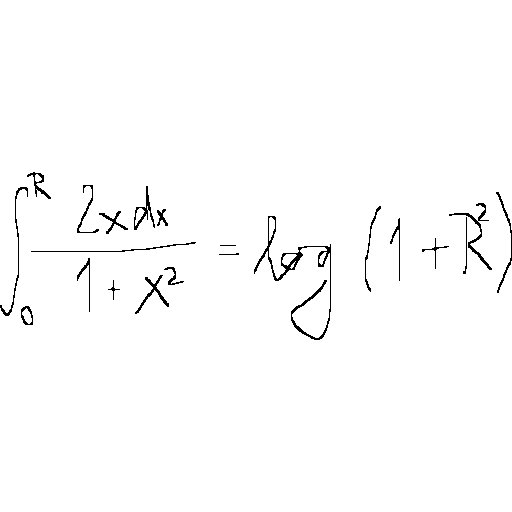 \int_0^R \frac{2x dx}{1+x^2} = \log(1+R^2)